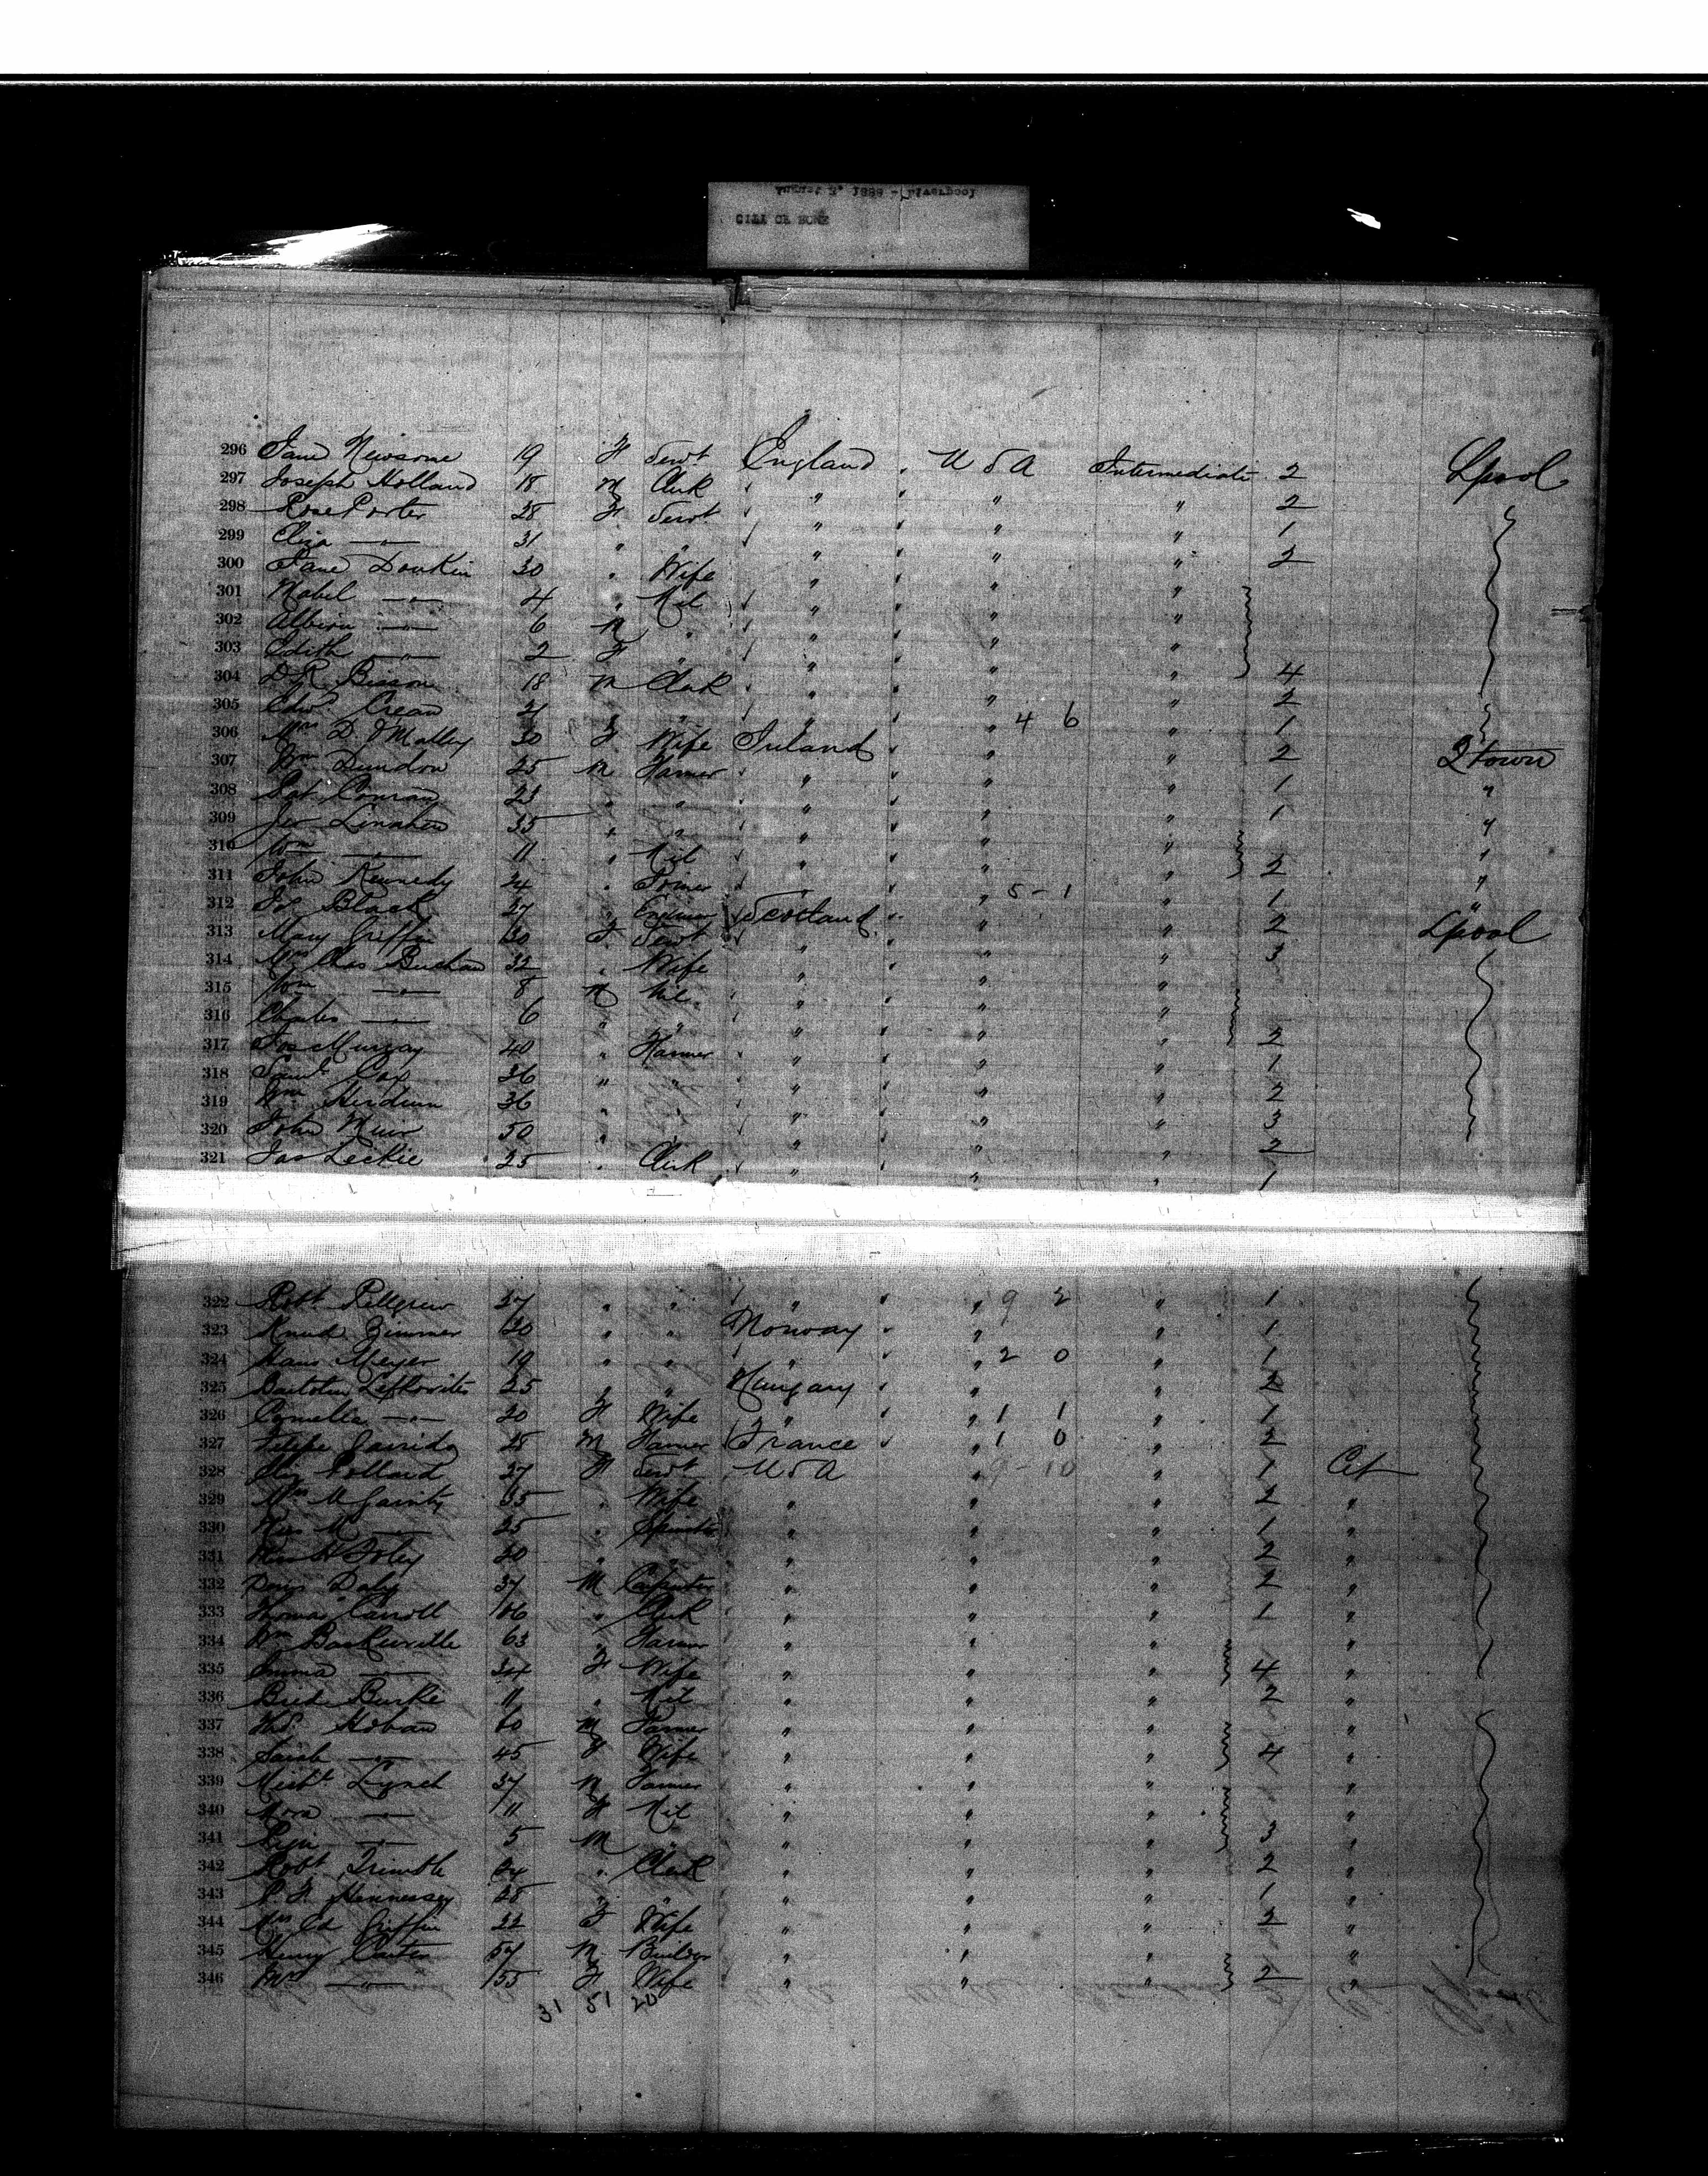 CITY OF ROME
296 Jane Newsome 19 F Servt England " U S A Intermediate 2 Lpool
297 Joseph Holland 18 M Clerk " " " 2
298 Rose Porter 28 F Servt " " " 1
299 Eliza —"— 31 " " " " " 2
300 Jane Donkin 30 " Wife " " "
301 Mabel —"— 4 " Nil " " "
302 6 M " " " "
303 Edith —"— 2 F " " " " 4
304 D R Bisson 18 M Clerk " " " 2
305 Edwd Crean 21 " " " " 4 6 " 1
306 Mrs D O'Malley 30 F Wife Ireland " " 2 Qtown
307 Wm Dundon 25 M Farmer " " " 1 "
308 Pat Conray 23 " " " " " 1 "
309 35 " " " " " "
310 Wm —"— 11 " Nil " " " 2 "
311 John Kennedy 24 " " " 5 - 1 " 1 "
312 Jos Black 27 " Scotland " " 2 Lpool
313 Mary Griffin 30 F. Servt " " " 3
314 Mrs Chas Buchan 32 " Wife " " "
315 Wm —"— 8 M Nil " " "
316 Charles —"— 6 " " " " " 2
317 Jos Murray 40 " Farmer " " " 1
318 Saml Cox 36 " " " " " 2
319 Wm 36 " " " " " 3
320 John Muir 50 " " " " " 2
321 Jas Leckie 25 " Clerk " " " 1
322 Robt 27 " " " " 9 2 " 1
323 Knud Zimmer 20 " " Norway " " 1
324 Hans Meyer 19 " " " " 2 0 " 1
325 25 " " Hungary " " 2
326 —"— 20 F Wife " " 1 1 " 1
327 Felipe Garrido 28 M Farmer France " 1 0 " 2
328 Eliz Pollard 27 F Servt U S A " 9 - 10 " 1 Cit
329 Mrs M Garrity 35 " Wife " " " 2 "
330 Miss M —"— 25 " Spinster " " " 1 "
331 Miss H Foley 20 " " " " " 2 "
332 Daly 37 M Carpenter " " " 2 "
333 Thomas Carroll " Clerk " " " 1 "
334 Wm Baskerville 63 " Farmer " " " "
335 Emma —"— 34 F Wife " " " 4 "
336 Burke 11 " Nil " " " 2 "
337 Thos. Hoban 60 M Farmer " " " "
338 Sarah —"— 45 F Wife " " " 4 "
339 Michl Lynch 37 M Farmer " " " "
340 Nora —"— 11 F Nil " " " "
341 —"— 5 M " " " " 3 "
342 Robt Trimble 24 " Clerk " " " 2 "
343 P F Hennessey 28 " " " " " 1 "
344 Mrs Ed Griffin 22 F Wife " " " 2 "
345 Henry Carter 57 M Builder " " " "
346 Mrs —"— 55 F Wife " " " 2 "
31 51 20